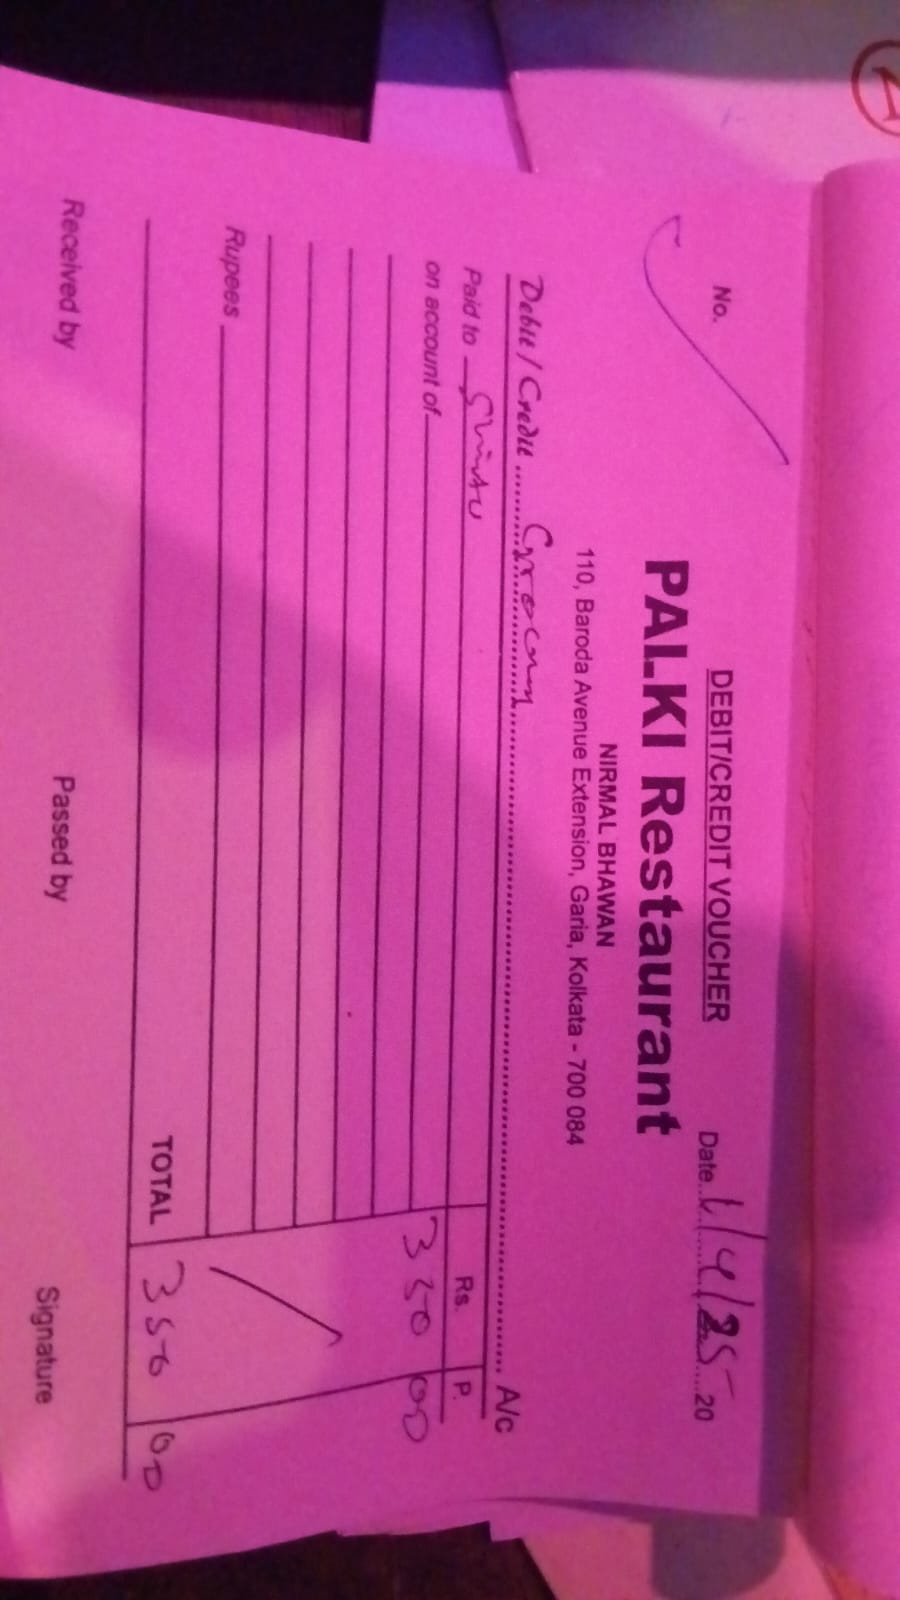 DEBIT/CREDIT VOUCHER
No. Date 1/4/25 20
PALKI Restaurant
NIRMAL BHAWAN
110, Baroda Avenue Extension, Garia, Kolkata - 700 084
Debit / Credit A/c
Paid to Rs. P.
on account of 350 00
Rupees
TOTAL 350 00
Received by Passed by Signature